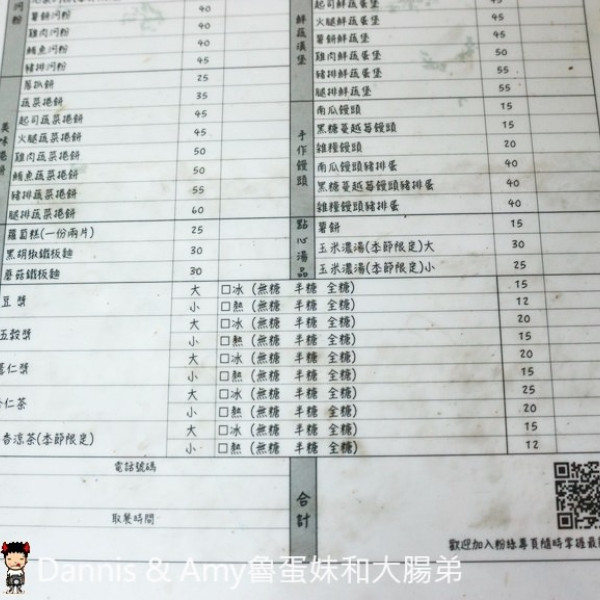 河粉
薯餅河粉 40
雞肉河粉 40
鮪魚河粉 40
豬排河粉 45
蔥抓餅 25
蔬菜捲餅 35
起司蔬菜捲餅 45
火腿蔬菜捲餅 45
雞肉蔬菜捲餅 50
鮪魚蔬菜捲餅 50
豬排蔬菜捲餅 55
腿排蔬菜捲餅 60
美味捲餅
蘿蔔糕(一份兩片) 25
黑胡椒鐵板麵 30
蘑菇鐵板麵 30
鮮蔬漢堡
起司鮮蔬蛋堡 45
火腿鮮蔬蛋堡 45
薯餅鮮蔬蛋堡 45
雞肉鮮蔬蛋堡 50
豬排鮮蔬蛋堡 55
腿排鮮蔬蛋堡 55
手作饅頭
南瓜饅頭 15
黑糖蔓越莓饅頭 15
雜糧饅頭 20
南瓜饅頭豬排蛋 40
黑糖蔓越莓饅頭豬排蛋 40
雜糧饅頭豬排蛋 40
點心湯品
薯餅 15
玉米濃湯(季節限定)大 30
玉米濃湯(季節限定)小 25
豆漿 大 □冰 (無糖 半糖 全糖) 15
小 □熱 (無糖 半糖 全糖) 12
五穀漿 大 □冰 (無糖 半糖 全糖) 20
小 □熱 (無糖 半糖 全糖) 15
仁漿 大 □冰 (無糖 半糖 全糖) 20
小 □熱 (無糖 半糖 全糖) 15
仁茶 大 □冰 (無糖 半糖 全糖) 25
小 □熱 (無糖 半糖 全糖) 20
香涼茶(季節限定) 大 □冰 (無糖 半糖 全糖) 15
小 □熱 (無糖 半糖 全糖) 12
電話號碼
取餐時間
合計
歡迎加入粉絲專頁隨時掌握最
Dannis & Amy魯蛋妹和大腸弟